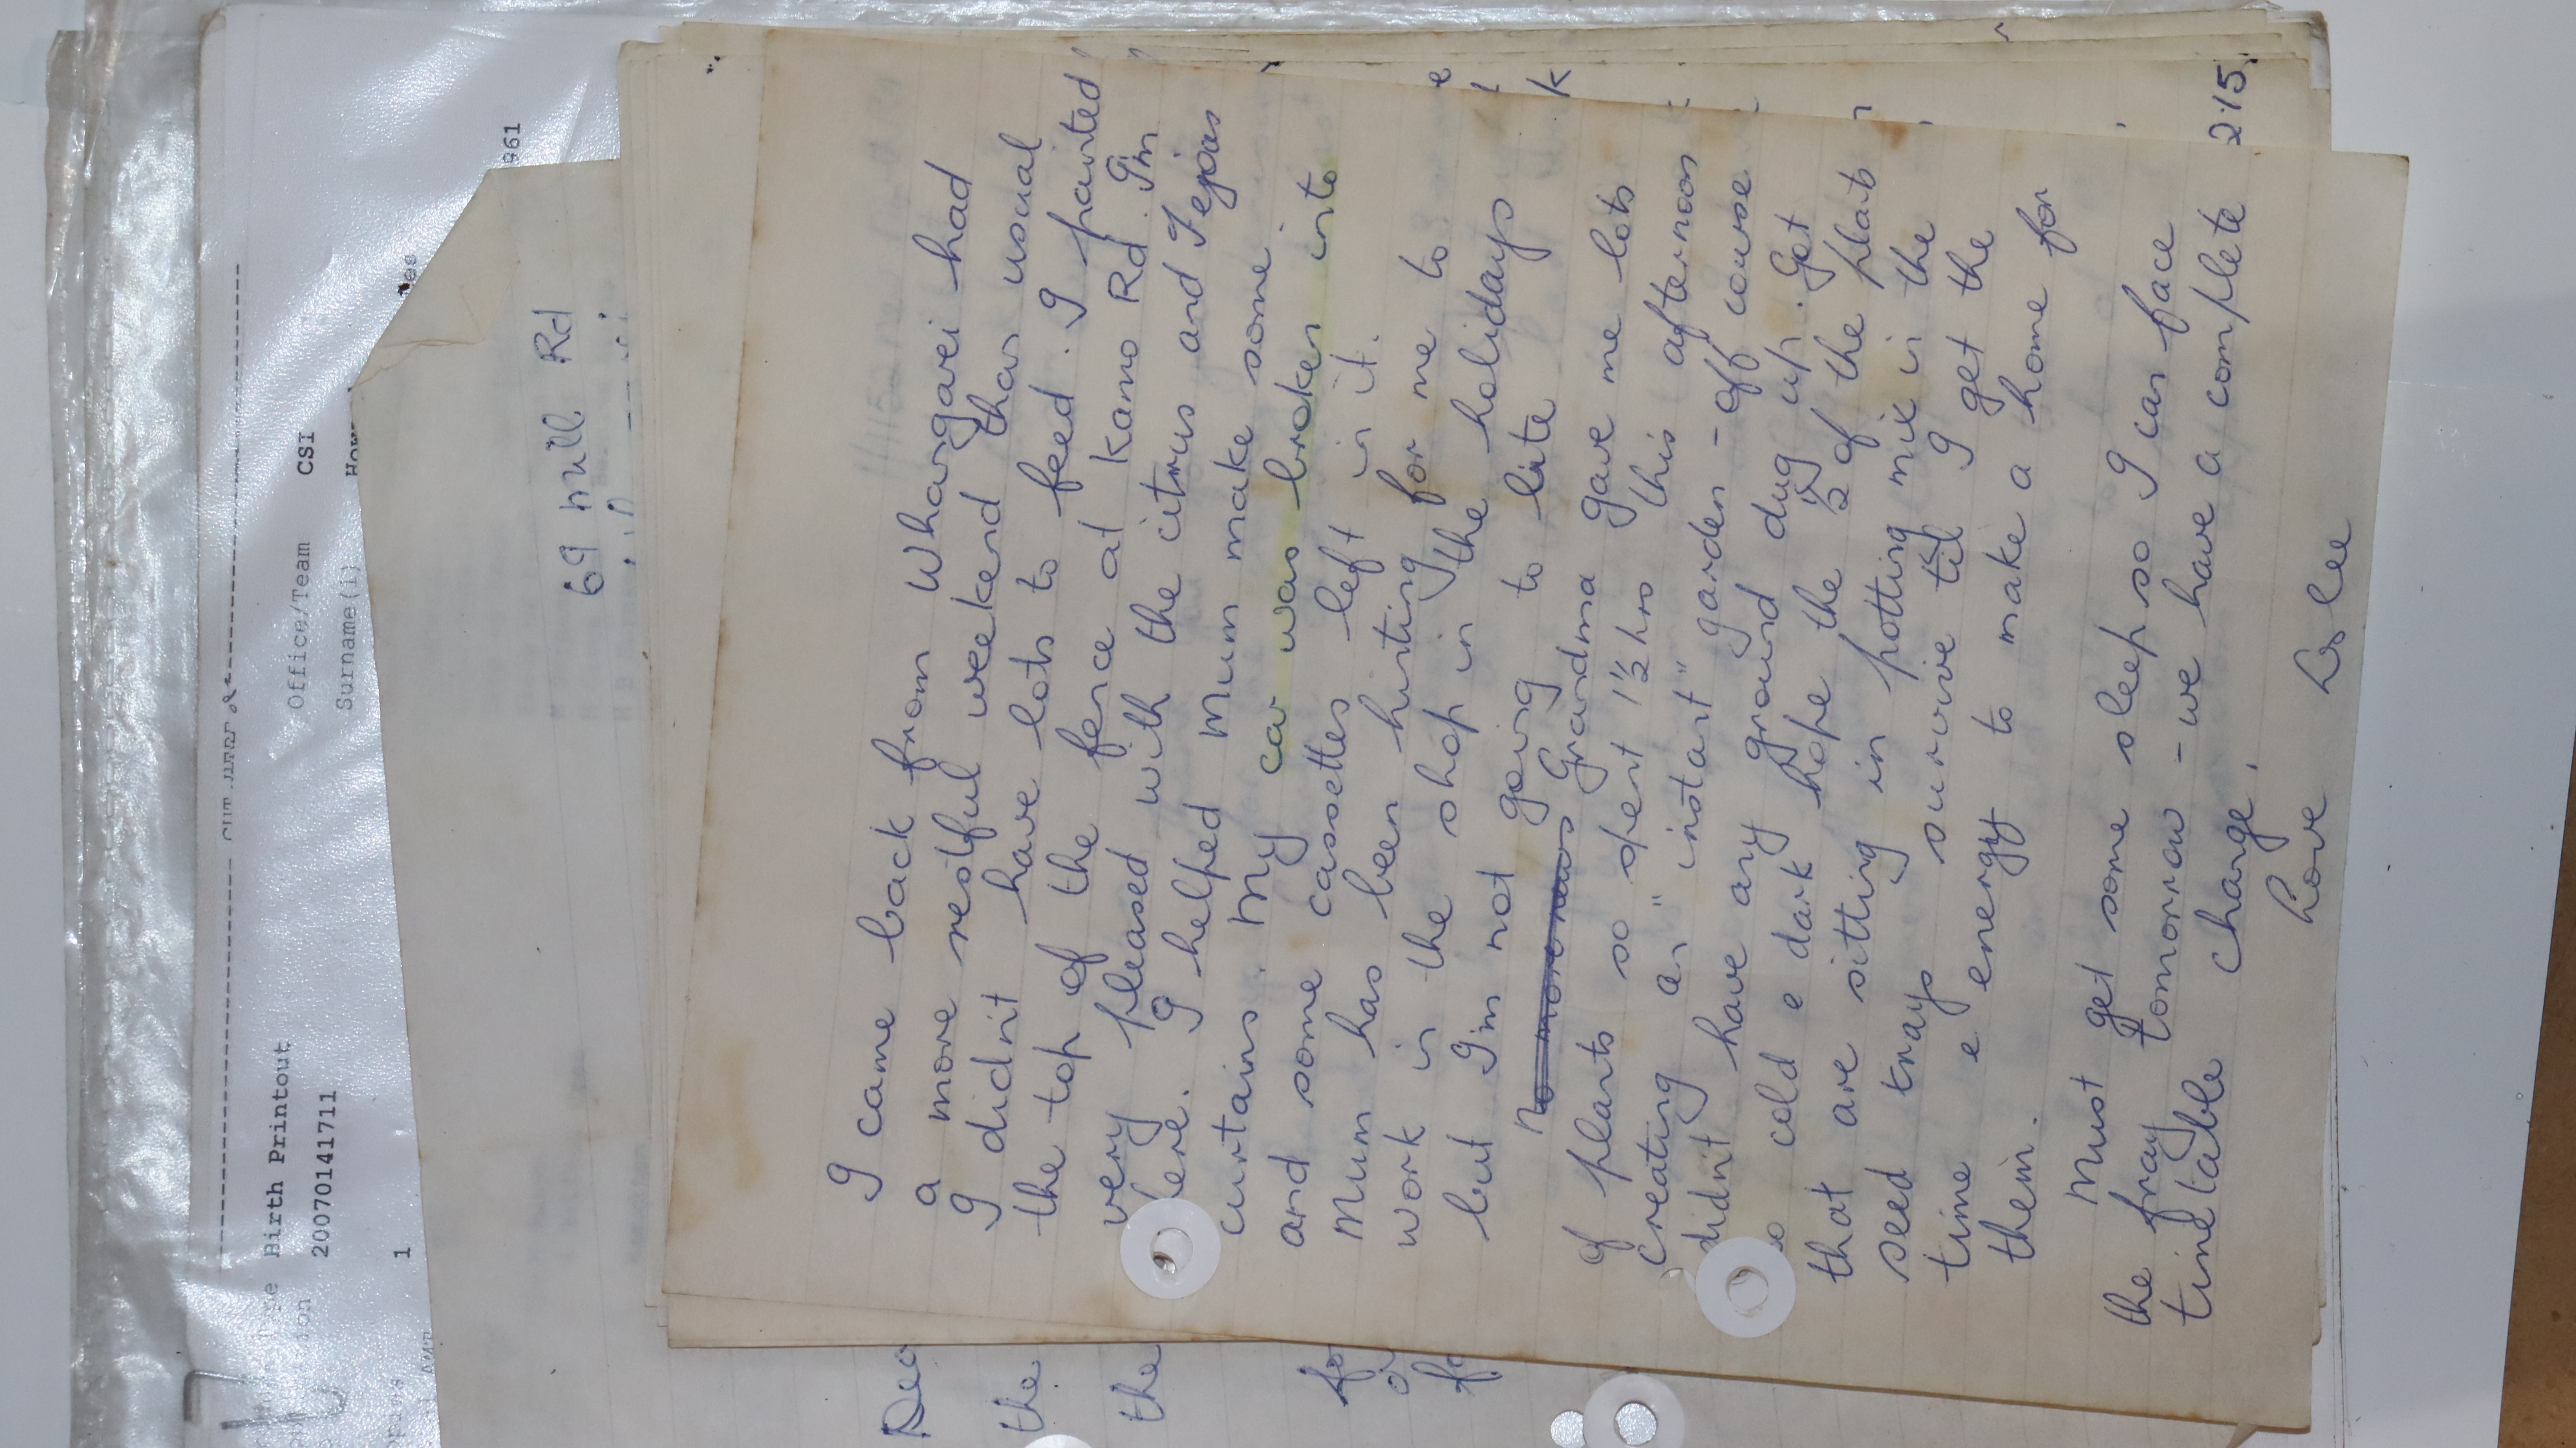 Birth Printout
Office/Team CSI
20070141711
Surname(1)
1
961
69 mill Rd
Dea
the
the
I came back from Whangarei had
a more restful weekend than usual
I didn't have lots to feed. I painted
the top of the fence at Kamo Rd. I'm
very pleased with the citrus and Feijoas
here. I helped Mum make some
curtains. My car was broken into
and some cassettes left in it.
Mum has been hinting for me to
work in the shop in the holidays
but I'm not going to bite
No more news Grandma gave me lots
of plants so spent 1½ hrs this afternoon
creating an "instant" garden - off course
didn't have any ground dug up. Got
so cold e dark hope the ½ of the plants
that are sitting in potting mix in the
seed trays survive til I get the
time e energy to make a home for
them.
Must get some sleep so I can face
the fray tomorrow - we have a complete
timetable change.
Love
2.15